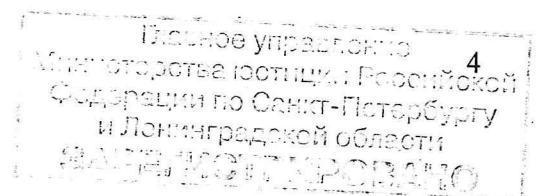 Главное управление
4
Министерства юстиции Российской
Федерации по Санкт-Петербургу
и Ленинградской области
ЗАРЕГИСТРИРОВАНО